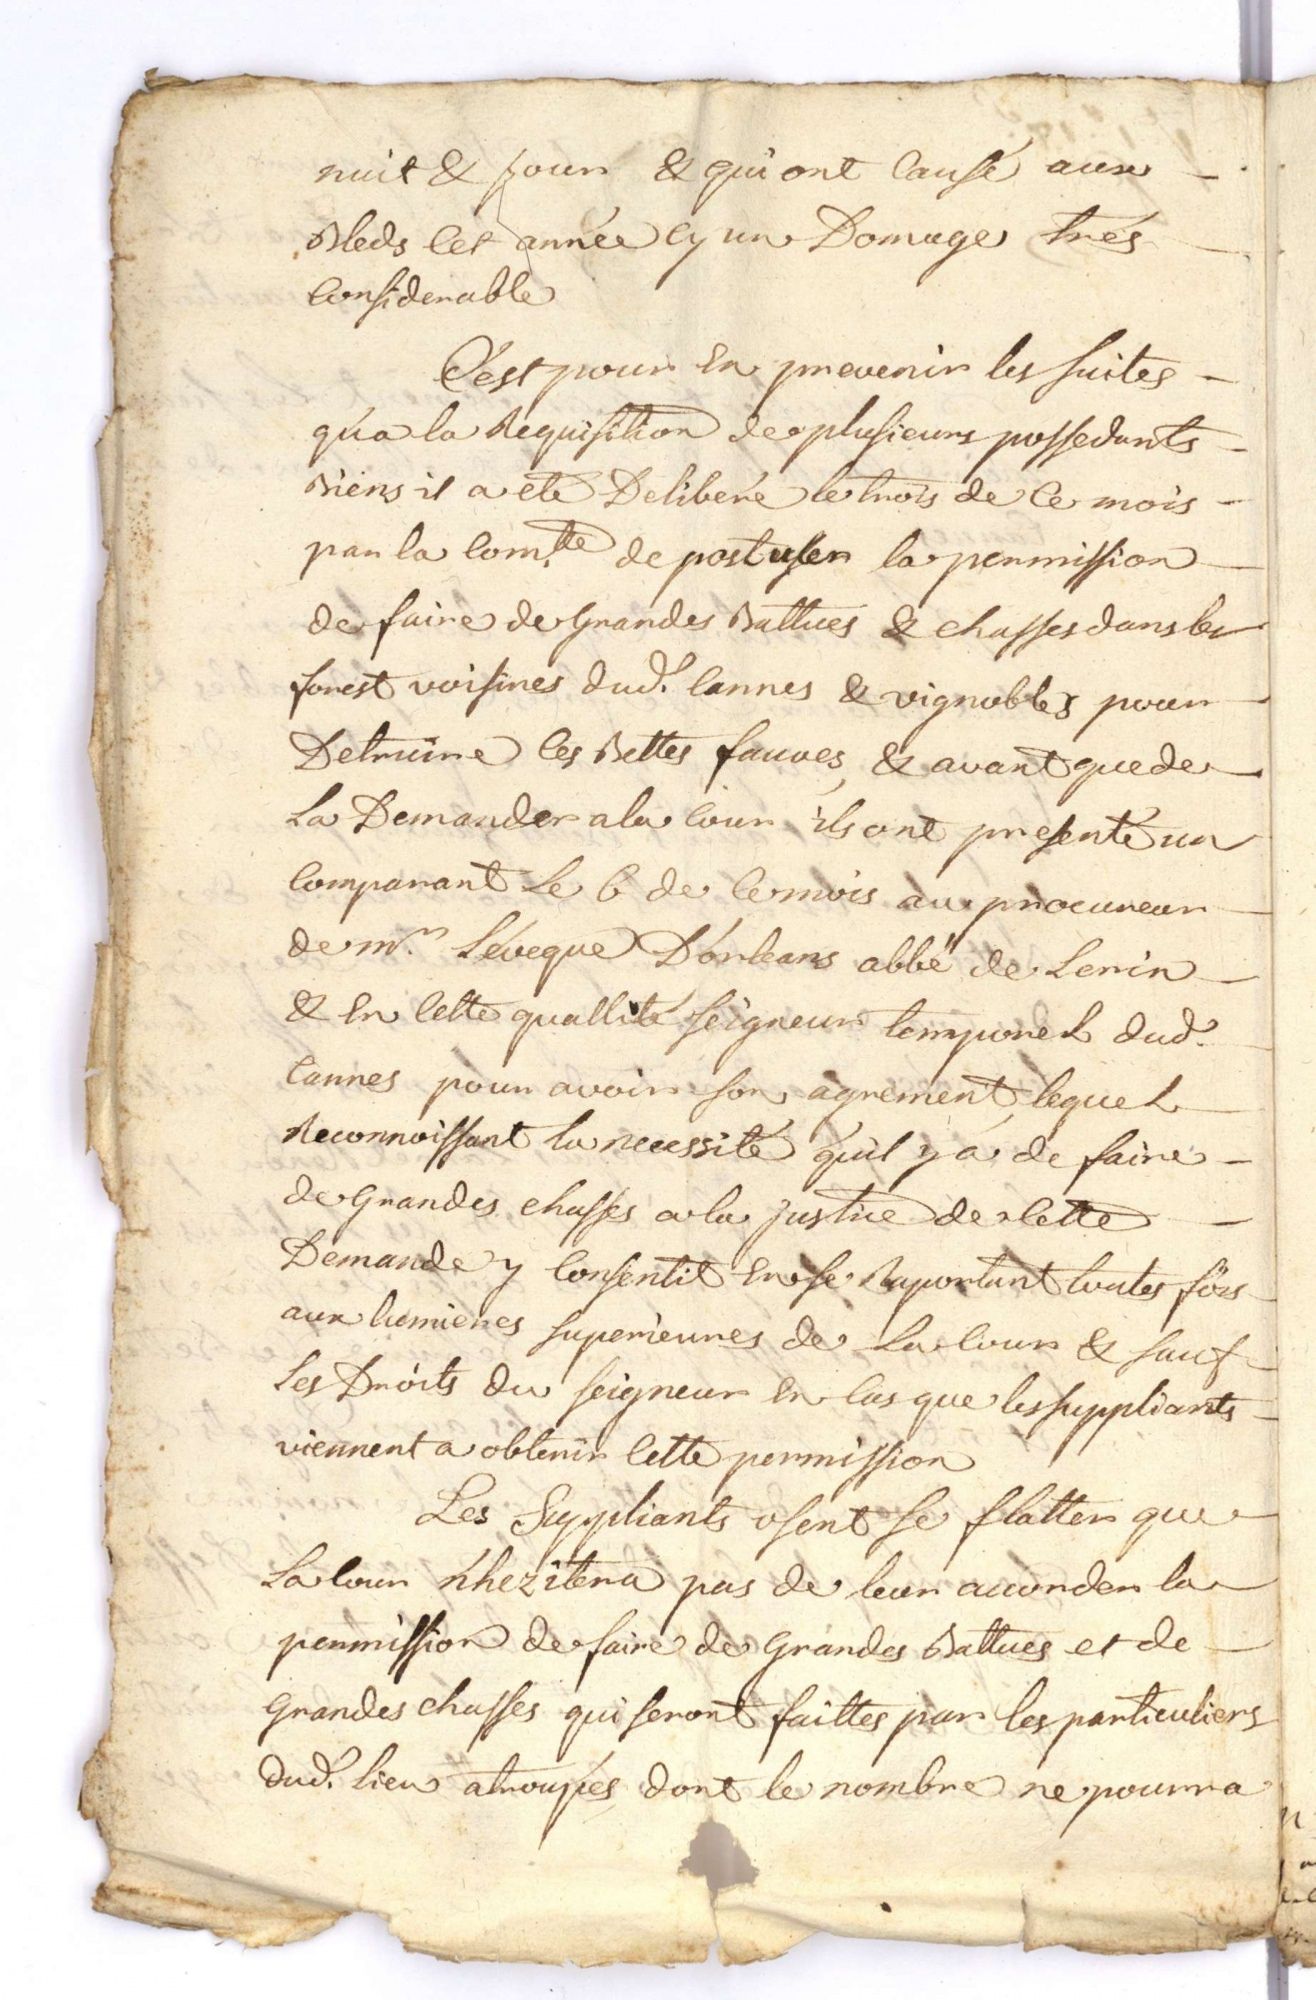 nuit & jour & qui ont causé aux
Bleds cet année cy un Domage trés
Considerable
C'est pour en prevenir les suites
qu'a la Requisition de plusieurs possedants
Biens il a eté Deliberé le trois de ce mois
par la Com.te de postuler la permission
de faire de grandes Battues & chasses dans les
forest voisines dud. Cannes & vignobles pour
Detruire ces Bettes fauves, & avant que de
La Demander a la Cour ils ont presenté un
Comparant Le 6 de ce mois au procureur
de m.r L'éveque D'orleans abbé de Lerin
& en cette quallité seigneur temporel dud.
Cannes pour avoir son agrement, lequel
Reconnoissant la necessité qu'il y a de faire
de grandes chasses a la justice de cette
Demande y Consentit en se Raportant toutes fois
aux lumieres superieures de La Cour & sauf
Les Droits du seigneur en cas que les suppliants
viennent a obtenir cette permission
Les Suppliants osent se flatter que
La Cour n'hezitera pas de leur accorder la
permission de faire de grandes Battues et de
grandes chasses qui seront faittes par les particuliers
dud. lieu atroupés, dont le nombre ne pourra